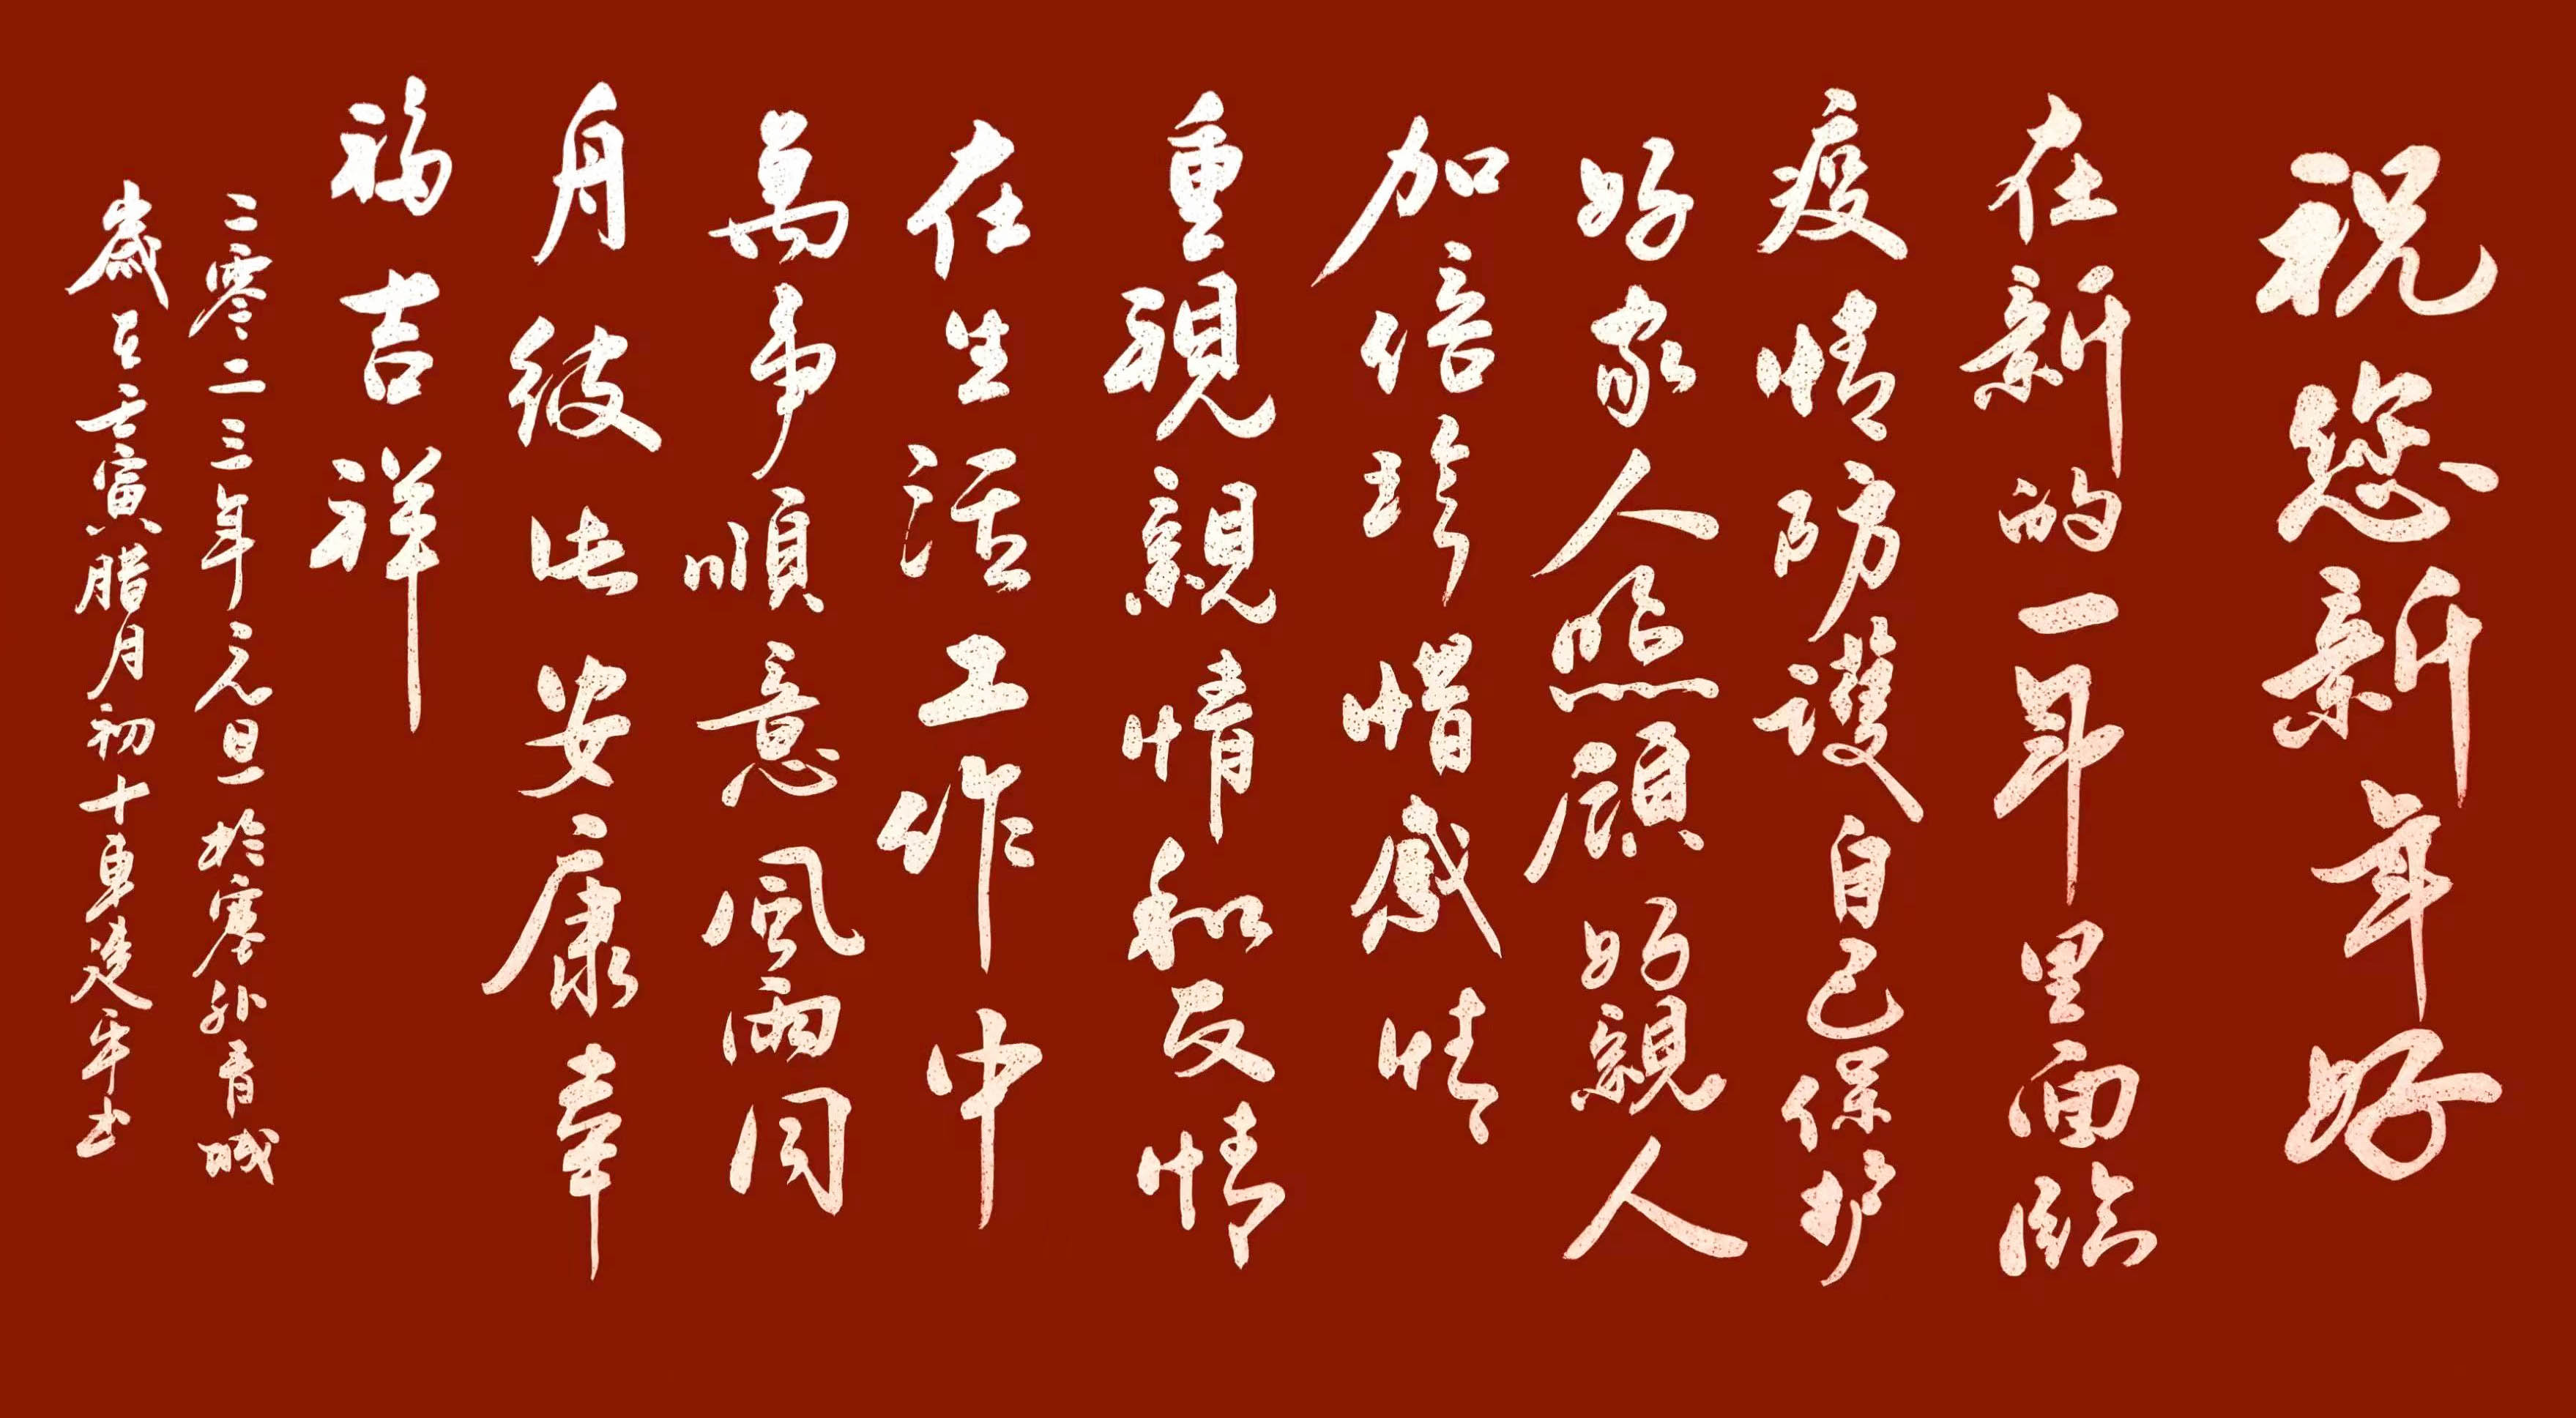 祝您新年好
在新的一年里面臨
疫情防護自己保护
好家人照顧好親人
加倍珍惜感情
重視親情和友情
在生活工作中
萬事順意風雨同
舟彼此安康幸
福吉祥
二零二三年元旦於塞外青城
歲在壬寅腊月初十車建平书